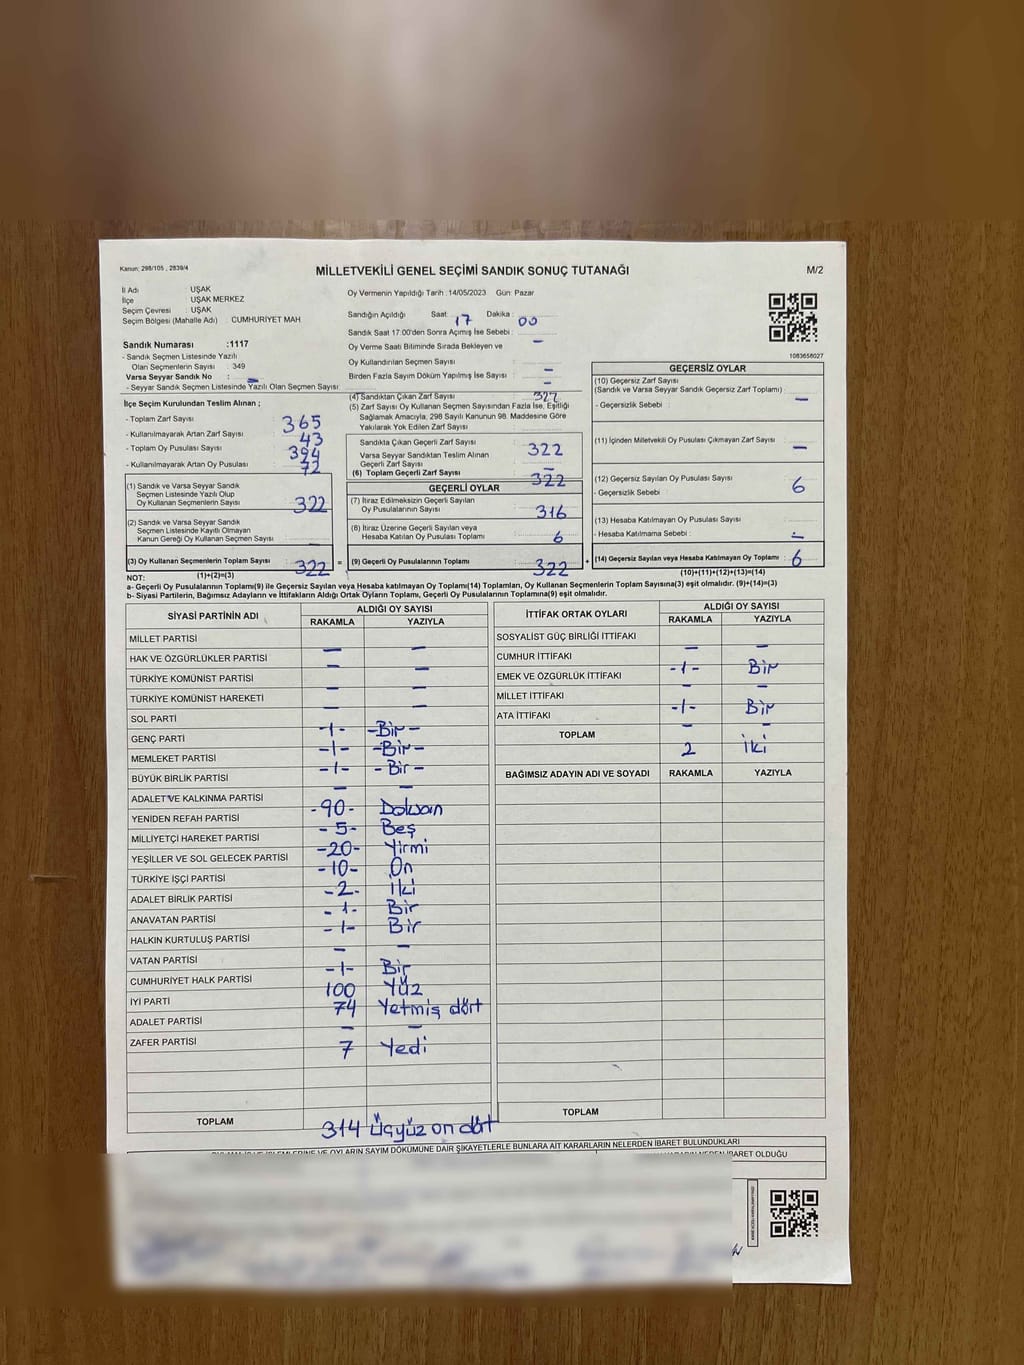 Kanun: 298/105 , 2839/4
MİLLETVEKİLİ GENEL SEÇİMİ SANDIK SONUÇ TUTANAĞI
M/2
İl Adı : UŞAK
İlçe : UŞAK MERKEZ
Seçim Çevresi : UŞAK
Seçim Bölgesi (Mahalle Adı) : CUMHURİYET MAH
Oy Vermenin Yapıldığı Tarih : 14/05/2023 Gün: Pazar
Sandığın Açıldığı Saat : 17 Dakika : 00
Sandık Saat 17:00'den Sonra Açmış İse Sebebi :
Oy Verme Saati Bitiminde Sırada Bekleyen ve
Oy Kullandırılan Seçmen Sayısı : –
Birden Fazla Sayım Döküm Yapılmış İse Sayısı : –
1083658027
Sandık Numarası :1117
- Sandık Seçmen Listesinde Yazılı
Olan Seçmenlerin Sayısı : 349
Varsa Seyyar Sandık No : –
- Seyyar Sandık Seçmen Listesinde Yazılı Olan Seçmen Sayısı :
İlçe Seçim Kurulundan Teslim Alınan ;
- Toplam Zarf Sayısı : 365
- Kullanılmayarak Artan Zarf Sayısı : 43
- Toplam Oy Pusulası Sayısı : 394
- Kullanılmayarak Artan Oy Pusulası : 72
(1) Sandık ve Varsa Seyyar Sandık
Seçmen Listesinde Yazılı Olup
Oy Kullanan Seçmenlerin Sayısı : 322
(2) Sandık ve Varsa Seyyar Sandık
Seçmen Listesinde Kayıtlı Olmayan
Kanun Gereği Oy Kullanan Seçmen Sayısı : –
(3) Oy Kullanan Seçmenlerin Toplam Sayısı : 322
(1)+(2)=(3)
(4) Sandıktan Çıkan Zarf Sayısı : 322
(5) Zarf Sayısı Oy Kullanan Seçmen Sayısından Fazla İse, Eşitliği
Sağlamak Amacıyla, 298 Sayılı Kanunun 98. Maddesine Göre
Yakılarak Yok Edilen Zarf Sayısı :
Sandıkta Çıkan Geçerli Zarf Sayısı : 322
Varsa Seyyar Sandıktan Teslim Alınan
Geçerli Zarf Sayısı : –
(6) Toplam Geçerli Zarf Sayısı : 322
GEÇERLİ OYLAR
(7) İtiraz Edilmeksizin Geçerli Sayılan
Oy Pusulalarının Sayısı : 316
(8) İtiraz Üzerine Geçerli Sayılan veya
Hesaba Katılan Oy Pusulası Toplamı : 6
= (9) Geçerli Oy Pusulalarının Toplamı : 322
GEÇERSİZ OYLAR
(10) Geçersiz Zarf Sayısı
(Sandık ve Varsa Seyyar Sandık Geçersiz Zarf Toplamı) : –
- Geçersizlik Sebebi :
(11) İçinden Milletvekili Oy Pusulası Çıkmayan Zarf Sayısı : –
(12) Geçersiz Sayılan Oy Pusulası Sayısı : 6
- Geçersizlik Sebebi :
(13) Hesaba Katılmayan Oy Pusulası Sayısı : –
- Hesaba Katılmama Sebebi :
+ (14) Geçersiz Sayılan veya Hesaba Katılmayan Oy Toplamı : 6
(10)+(11)+(12)+(13)=(14)
NOT:
a- Geçerli Oy Pusulalarının Toplamı(9) ile Geçersiz Sayılan veya Hesaba katılmayan Oy Toplamı(14) Toplamları, Oy Kullanan Seçmenlerin Toplam Sayısına(3) eşit olmalıdır. (9)+(14)=(3)
b- Siyasi Partilerin, Bağımsız Adayların ve İttifakların Aldığı Ortak Oyların Toplamı, Geçerli Oy Pusulalarının Toplamına(9) eşit olmalıdır.
SİYASİ PARTİNİN ADI ALDIĞI OY SAYISI
RAKAMLA YAZIYLA
MİLLET PARTİSİ – –
HAK VE ÖZGÜRLÜKLER PARTİSİ – –
TÜRKİYE KOMÜNİST PARTİSİ – –
TÜRKİYE KOMÜNİST HAREKETİ – –
SOL PARTİ -1- -Bir-
GENÇ PARTİ -1- -Bir-
MEMLEKET PARTİSİ -1- -Bir-
BÜYÜK BİRLİK PARTİSİ – –
ADALET VE KALKINMA PARTİSİ -90- Doksan
YENİDEN REFAH PARTİSİ -5- Beş
MİLLİYETÇİ HAREKET PARTİSİ -20- Yirmi
YEŞİLLER VE SOL GELECEK PARTİSİ -10- On
TÜRKİYE İŞÇİ PARTİSİ -2- İki
ADALET BİRLİK PARTİSİ -1- Bir
ANAVATAN PARTİSİ -1- Bir
HALKIN KURTULUŞ PARTİSİ – –
VATAN PARTİSİ -1- Bir
CUMHURİYET HALK PARTİSİ 100 Yüz
İYİ PARTİ 74 Yetmiş dört
ADALET PARTİSİ – –
ZAFER PARTİSİ 7 Yedi
TOPLAM 314 Üçyüz on dört
İTTİFAK ORTAK OYLARI ALDIĞI OY SAYISI
RAKAMLA YAZIYLA
SOSYALİST GÜÇ BİRLİĞİ İTTİFAKI – –
CUMHUR İTTİFAKI -1- Bir
EMEK VE ÖZGÜRLÜK İTTİFAKI – –
MİLLET İTTİFAKI -1- Bir
ATA İTTİFAKI – –
TOPLAM 2 İki
BAĞIMSIZ ADAYIN ADI VE SOYADI RAKAMLA YAZIYLA
TOPLAM
OYLARIN SAYIM DÖKÜMÜNE DAİR ŞİKAYETLERLE BUNLARA AİT KARARLARIN NELERDEN İBARET BULUNDUKLARI
İBARET OLDUĞU